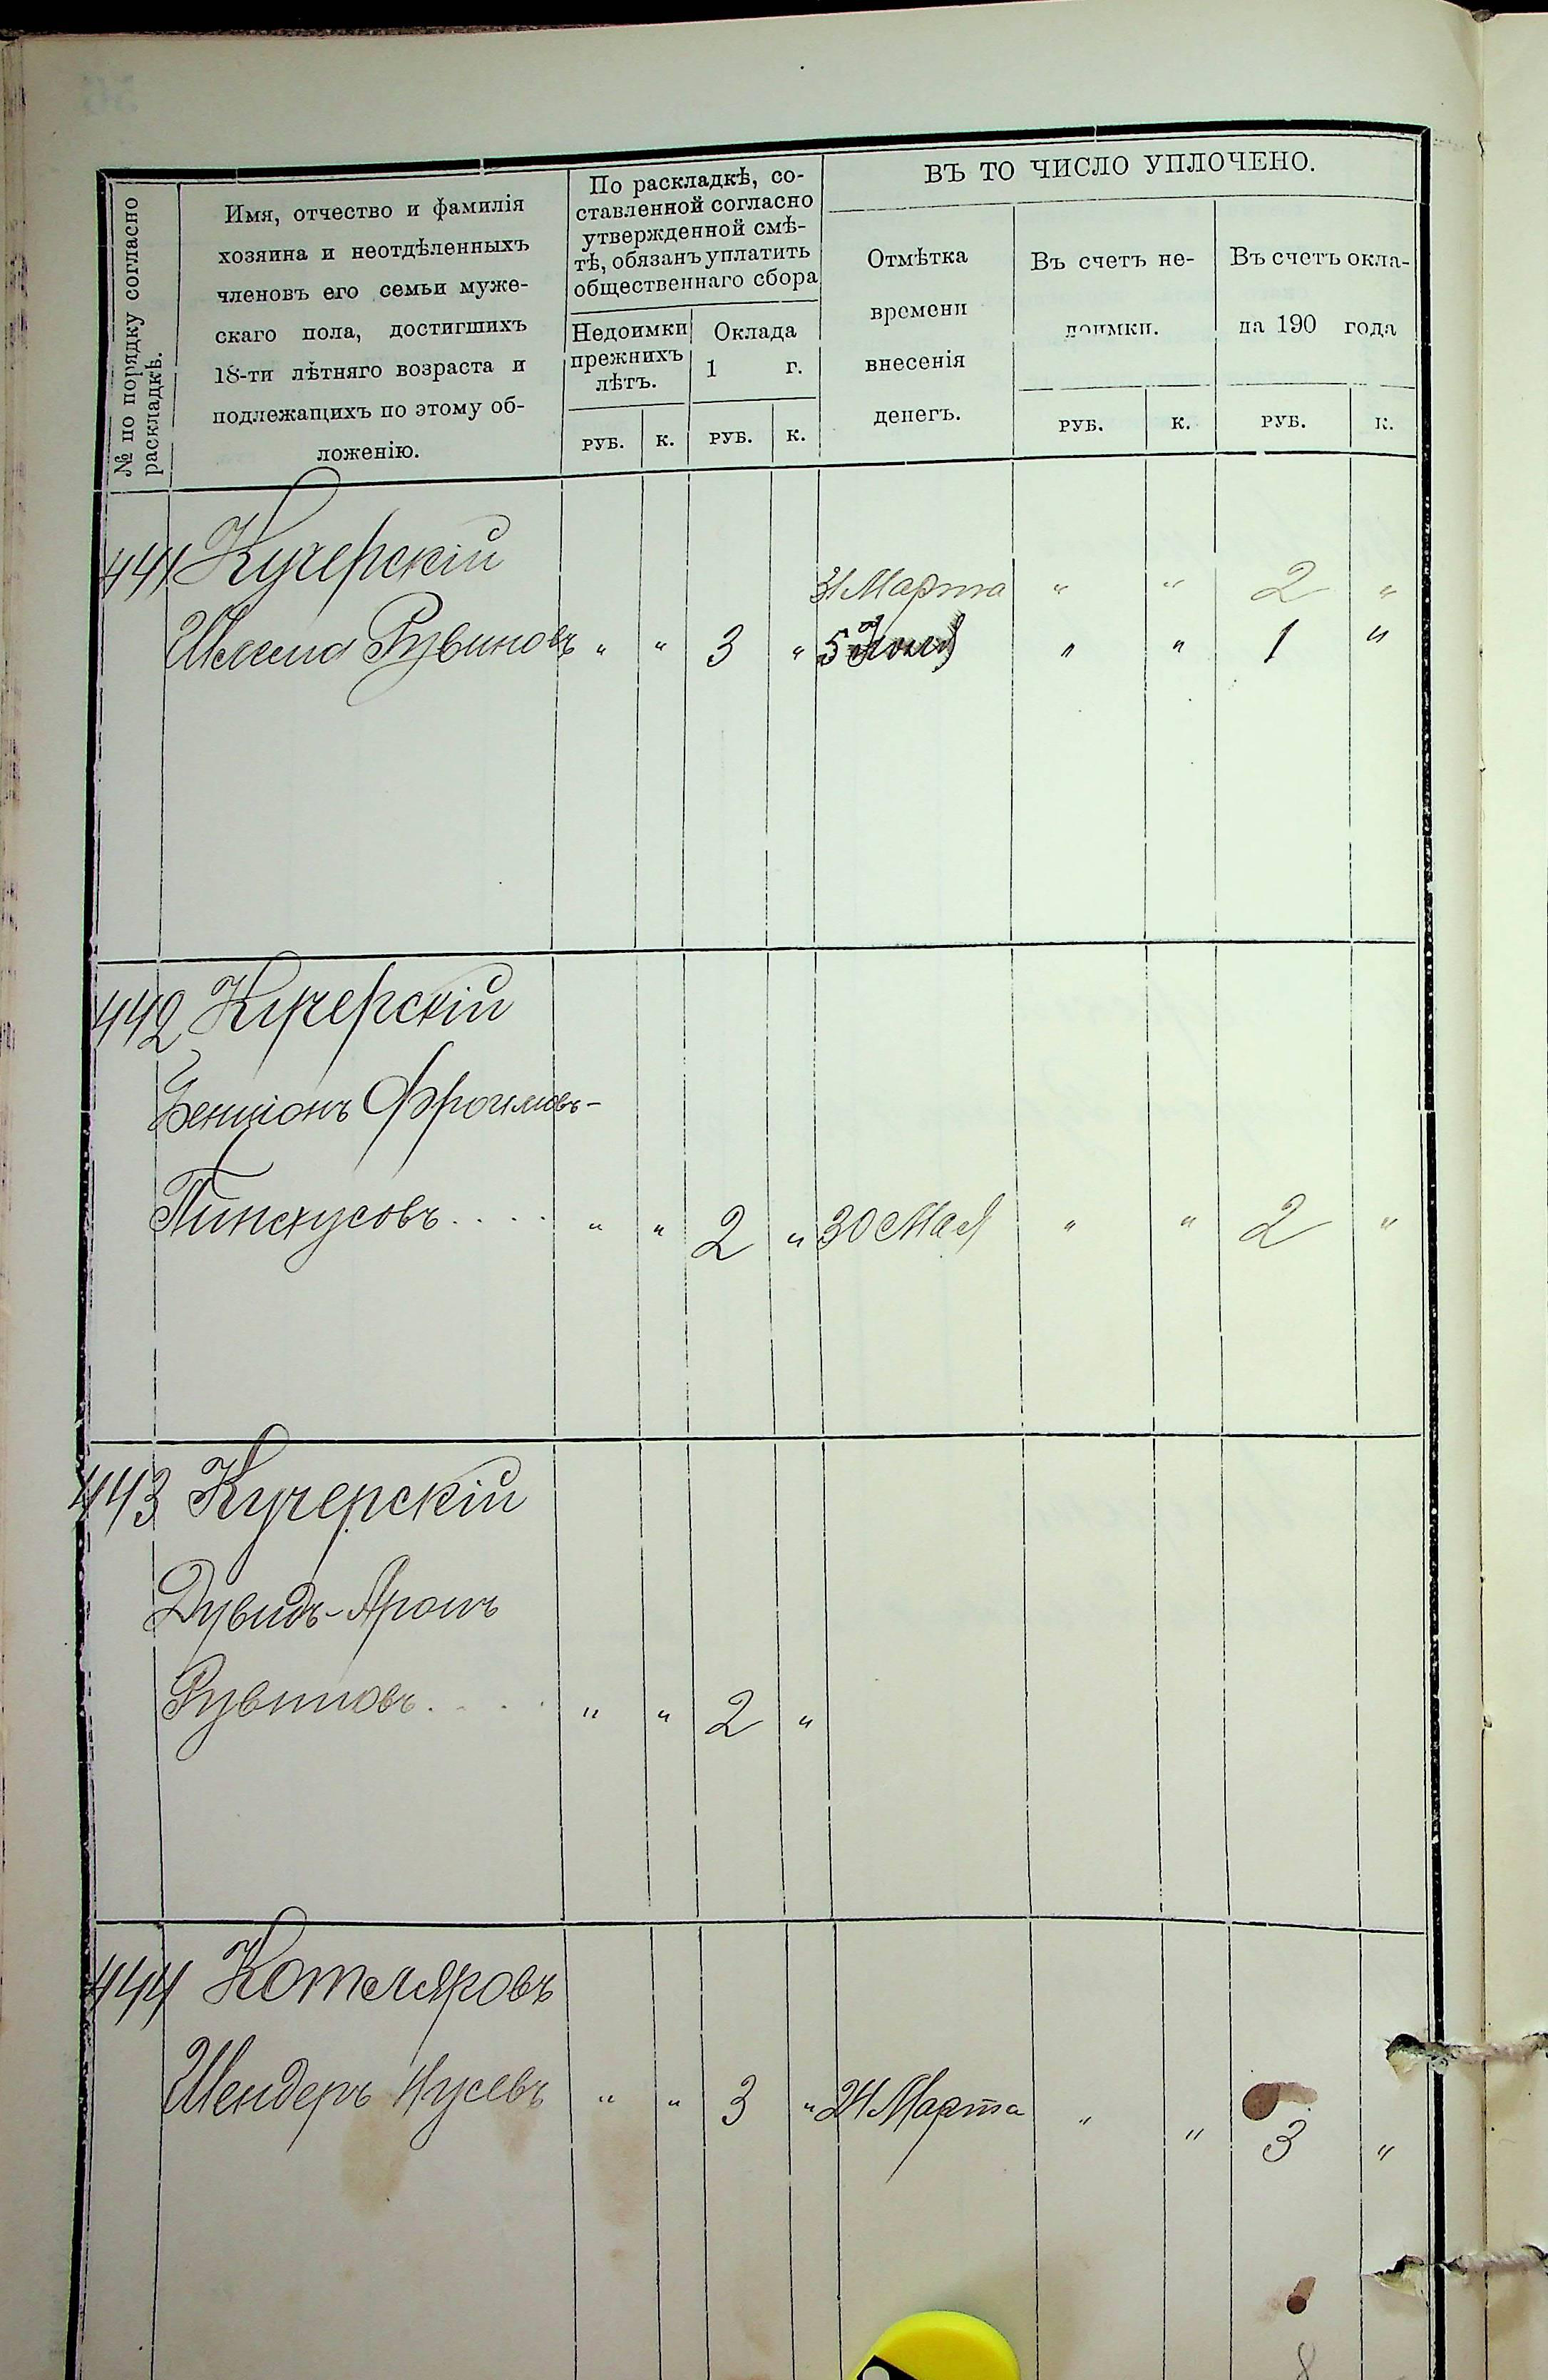 № по порядку согласно
раскладкѣ.
Имя, отчество и фамилія
хозяина и неотдѣленныхъ
членовъ его семьи муже-
скаго пола, достигшихъ
18-ти лѣтняго возраста и
подлежащихъ по этому об-
ложенію.
По раскладкѣ, со-
ставленной согласно
утвержденной смѣ-
тѣ, обязанъ уплатить
общественнаго сбора
Недоимки
прежнихъ
лѣтъ.
Оклада
1 г.
РУБ. К. РУБ. К.
ВЪ ТО ЧИСЛО УПЛОЧЕНО.
Отмѣтка
времени
внесенія
денегъ.
Въ счетъ не-
доимки.
Въ счетъ окла-
да 190 года
РУБ. К. РУБ. К.
441 Кучерскій
31 Марта " " 2 "
Рувиновъ " " 3 " 5 " " 1 "
442 Кучерскій
Бенціонъ Фроимовъ-
Пинхусовъ.... " " 2 " 30 Мая " " 2 "
443 Кучерскій
Дувидъ-Аронъ
Рувиновъ.... " " 2 "
444 Котляровъ
Шендеръ Нусевъ " " 3 " 24 Марта " " 3 "
8